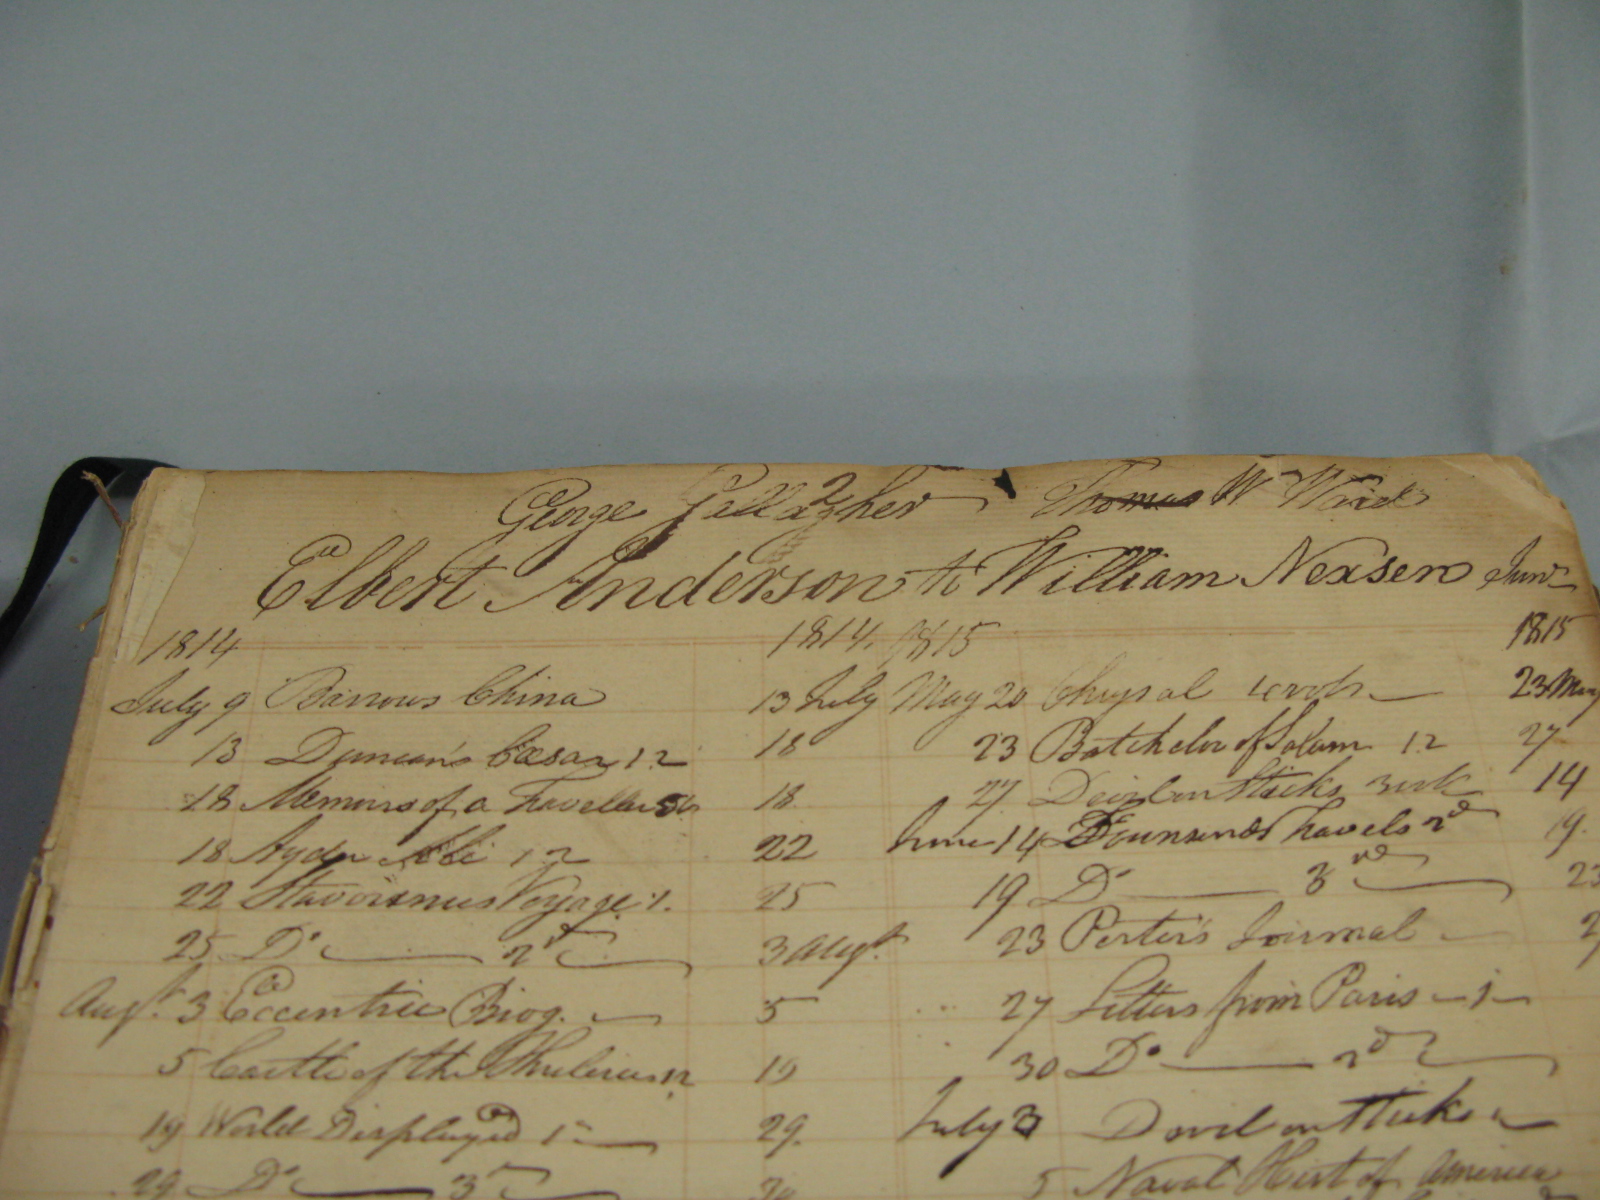 George Gallagher Thomas W Ward
Elbert Anderson to William Nexsen Junr
1814 1814. 1815 1815
July 9 Barrows China 13 July May 20 Chrysal 4 vols 23 May
13 Duncan's Cæsar 1.2 18 23 Batchelor of Salam 1.2 27
18 Memoirs of a Traveller 18 27 Devil on Sticks 14
18 Hyder 1 2 22 June 14 Townsend Travels 2d 19.
22 Stavorinus Voyage 1. 25 19 Do 3rd 23
25 Do 2d 3 Augt. 23 Porter's Journal
Augt. 3 Eccentric Biog. 5 27 Letters from Paris 1
5 Castle of the 19 30 Do 2d
19 World Displayed 1 29. July 3 Devil on Sticks
29 Do 3 30 5 Naval Hist of America